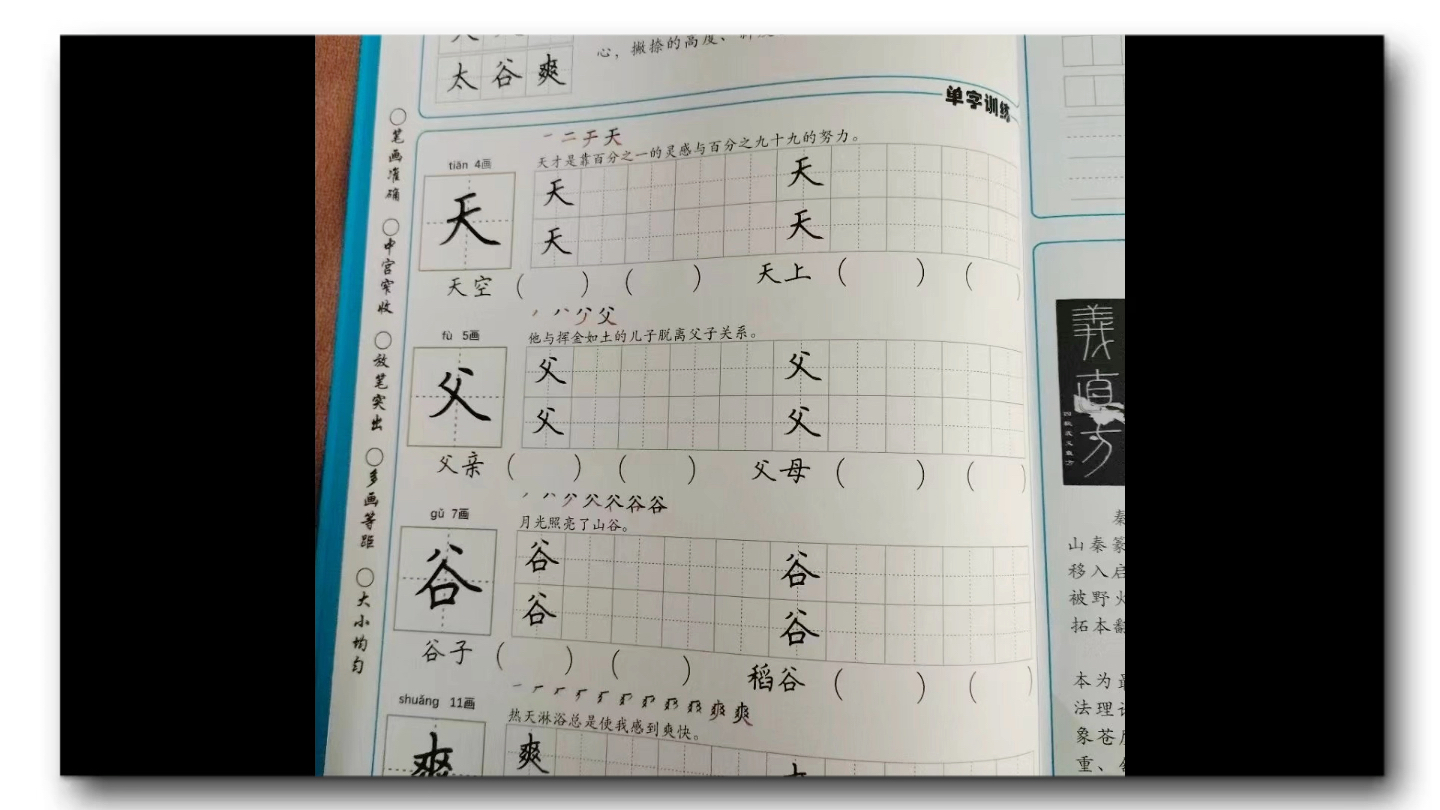 太 谷 爽
心，撇捺的高度、
单字训练
○笔画准确 ○中宫窄收 ○放笔突出 ○多画等距 ○大小均匀
一 二 于 天
tiān 4画
天才是靠百分之一的灵感与百分之九十九的努力。
天 天 天
天 天
天空（ ）（ ） 天上（ ）（ ）
父
fù 5画
他与挥金如土的儿子脱离父子关系。
父 父 父
父 父
父亲（ ）（ ） 父母（ ）（ ）
谷 谷
gǔ 7画
月光照亮了山谷。
谷 谷 谷
谷 谷
谷子（ ）（ ） 稻谷（ ）（ ）
爽 爽
shuǎng 11画
热天淋浴总是使我感到爽快。
爽 爽
義直方
秦
山秦篆
移入启
被野
拓本翻
本为
法理
象苍
重、